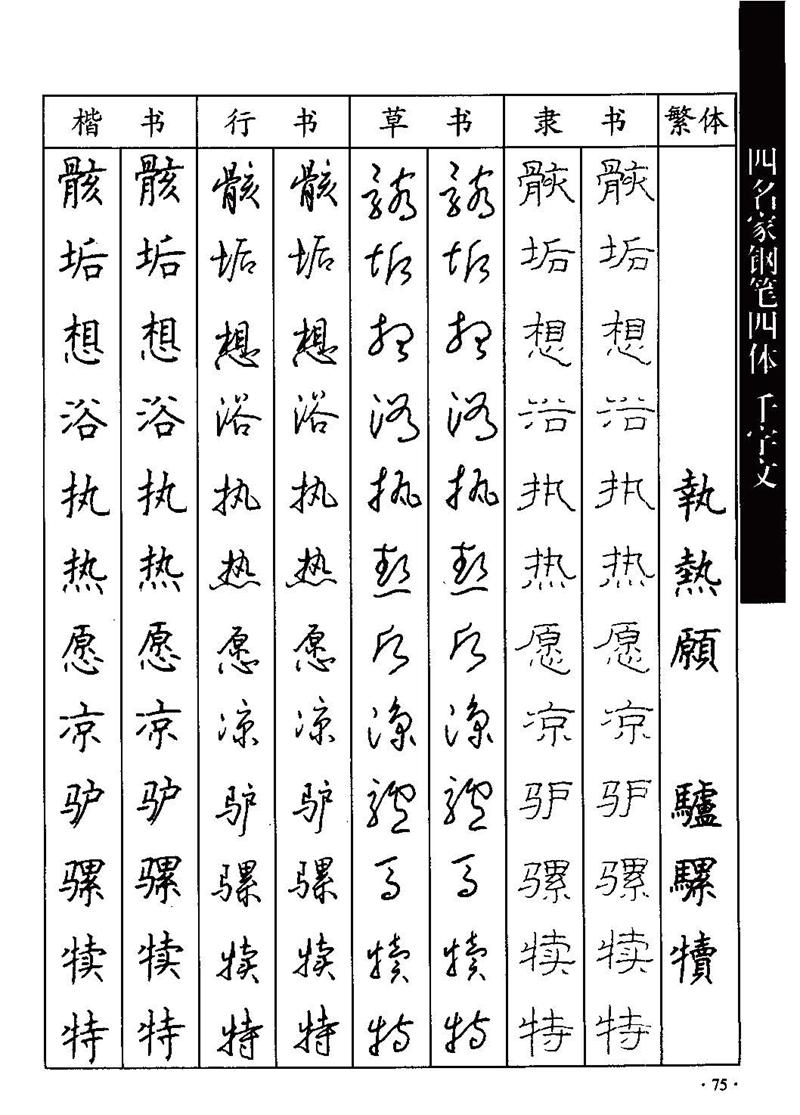 楷书 行书 草书 隶书 繁体
骸 骸 骸 骸 骸 骸 骸 骸
垢 垢 垢 垢 垢 垢 垢 垢
想 想 想 想 想 想 想 想
浴 浴 浴 浴 浴 浴 浴 浴
执 执 执 执 执 执 执 执 執
热 热 热 热 热 热 热 热 熱
愿 愿 愿 愿 愿 愿 愿 愿 願
凉 凉 凉 凉 凉 凉 凉 凉
驴 驴 驴 驴 驴 驴 驴 驴 驢
骡 骡 骡 骡 骡 骡 骡 骡 騾
犊 犊 犊 犊 犊 犊 犊 犊 犢
特 特 特 特 特 特 特 特
四名家钢笔四体 千字文
·75·